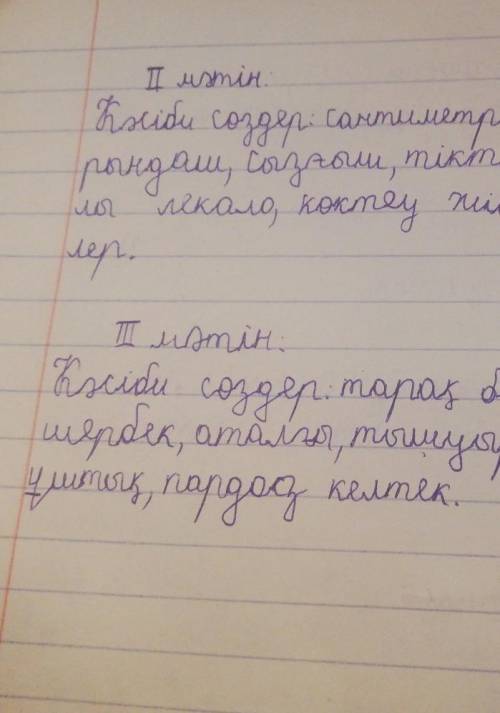 II мәтін:
Кәсіби сөздер: сантиметр
рындаш, сызғыш, тікт
лы лекало, көктеу жіп
лер.
III мәтін:
Кәсіби сөздер: тарақ б
шербек, аталғы,
ұштық, пардоз келтек.